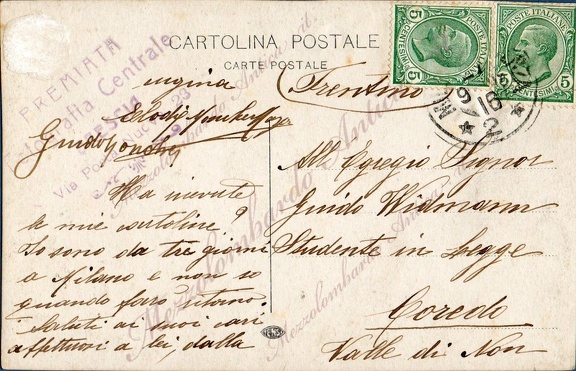 CARTOLINA POSTALE
CARTE POSTALE
PREMIATA
Fotografia Centrale
Via Ponte Nuovo 23
5 POSTE ITALIANE CENTESIMI 5
5 POSTE ITALIANE CENTESIMI 5
16
2
(Trentino)
All' Egregio Signor
Guido Widmann
Studente in legge
Coredo
Valle di Non
cugina
Guido
Ha ricevute
le mie cartoline?
Io sono da tre giorni
a Milano e non so
quando farò ritorno.
Saluti ai suoi cari
affettuosi a lei, dalla
Mezzolombardo Antiur